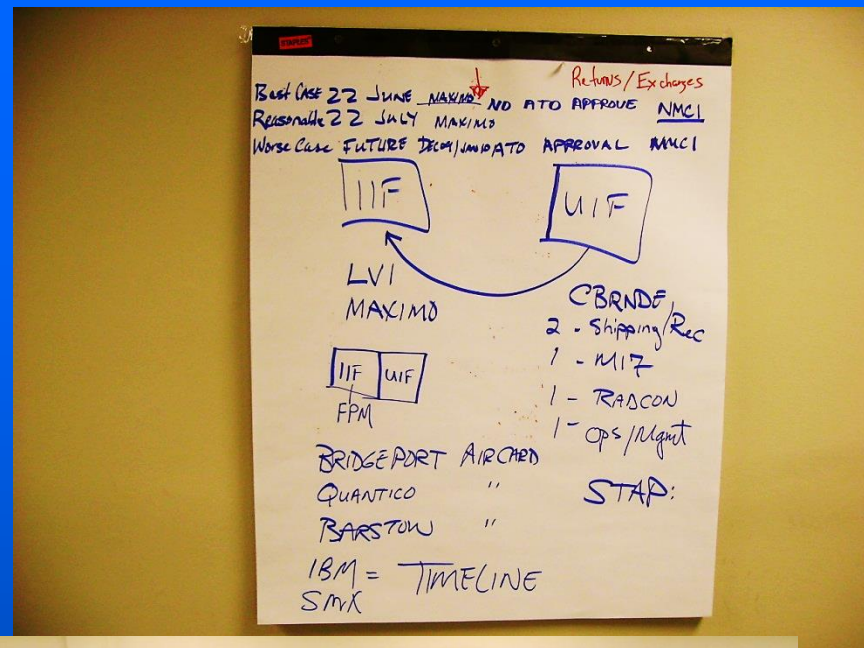 STAPLES
Returns/Exchanges
Best Case 22 JUNE MAXIMO NO ATO APPROVE NMCI
Reasonable 22 JULY MAXIMO
Worse Case FUTURE ATO APPROVAL NMCI
IIF
UIF
LVI
MAXIMO
CBRNDE/
2 - Shipping/Rec
1 - M17
1 - RADCON
1 - OPS/Mgmt
IIF UIF
FPM
BRIDGEPORT AIRCARD
QUANTICO "
BARSTOW "
STAP:
IBM = TIMELINE
SMX